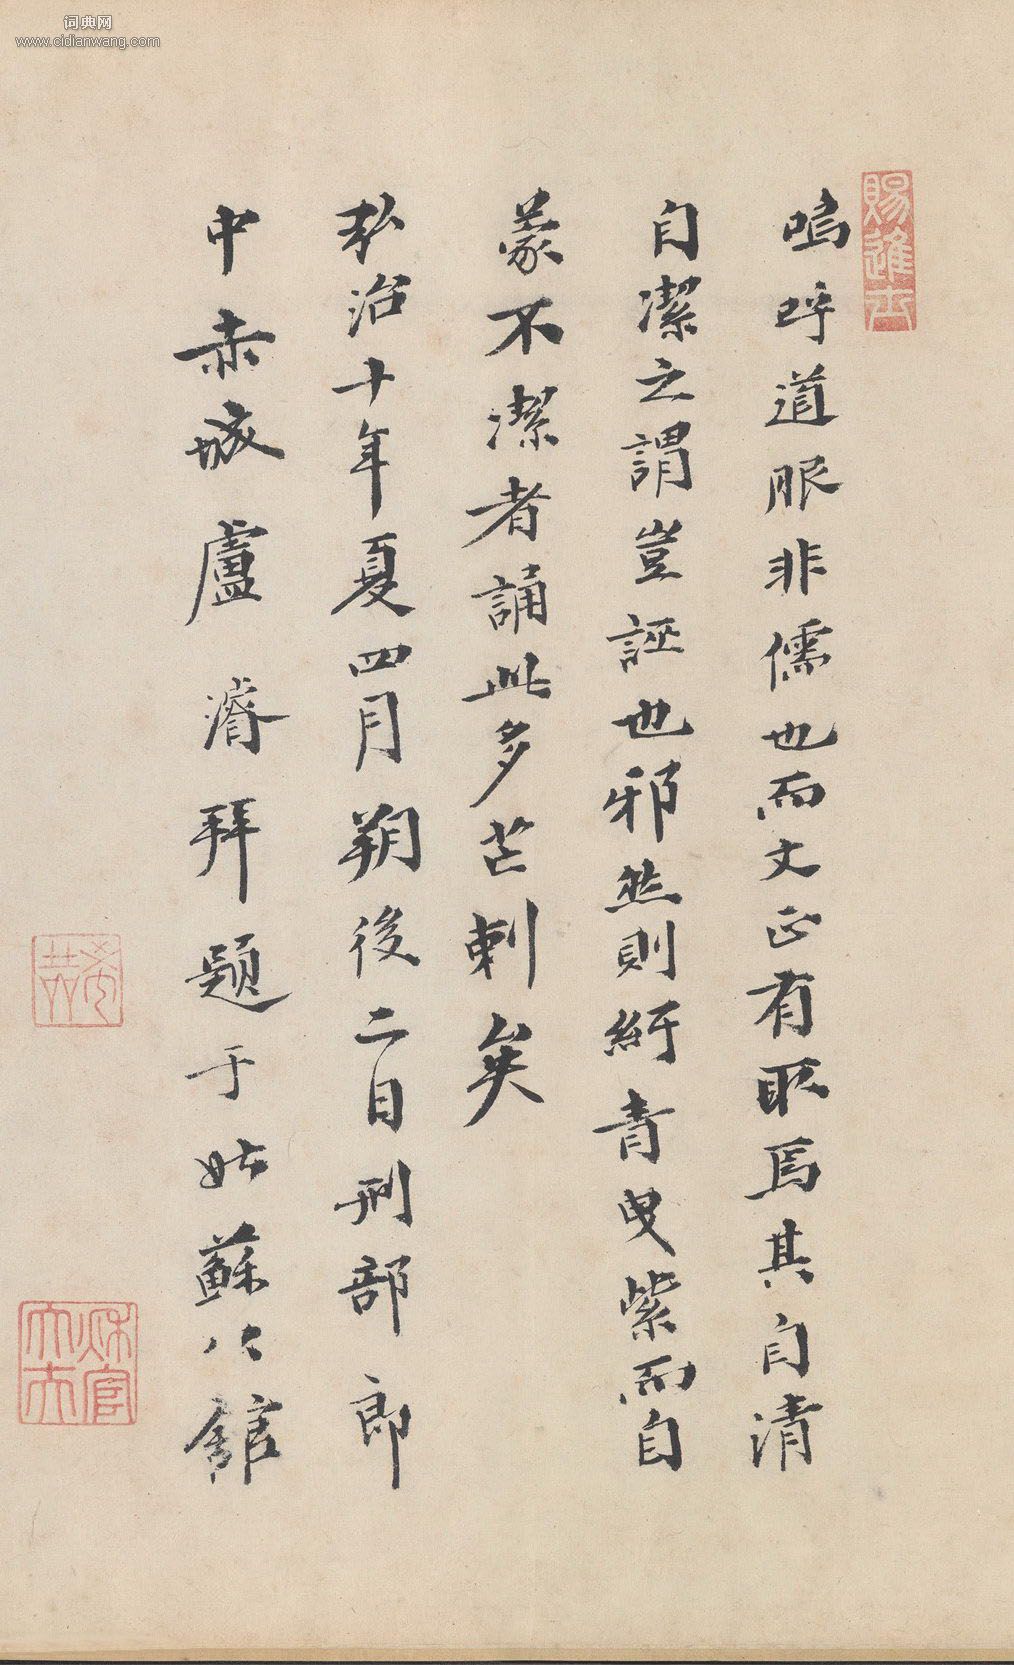 词典网
www.cidianwang.com
賜進士
嗚呼道服非儒也而文正有取焉其自清
自潔之謂豈誣也邪然則紆青曳紫而自
蒙不潔者誦此多芒刺矣
弘治十年夏四月朔後二日刑部郎
中赤城盧濬拜題于姑蘇公館
希喆
秋官大夫